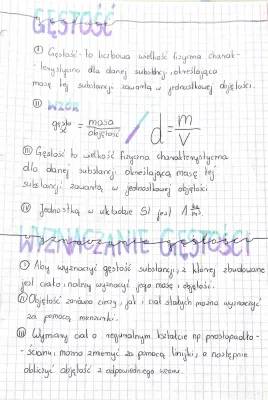 GĘSTOŚĆ
I Gęstość - to liczbowa wielkość fizyczna charak-
- terystyczna dla danej substancji, określająca
masę tej substancji zawartą w jednostkowej objętości.
II WZÓR
gęstość = masa / objętość d = m / V
III Gęstość to wielkość fizyczna charakterystyczna
dla danej substancji określająca masę tej
substancji zawartą w jednostkowej objętości
IV Jednostką w układzie SI jest 1 kg/m³
WYZNACZANIE GĘSTOŚCI
I Aby wyznaczyć gęstość substancji, z której zbudowane
jest ciało, należy wyznaczyć jego masę i objętość.
II Objętość zarówno cieczy, jak i ciał stałych można wyznaczyć
za pomocą menzurki.
III Wymiary ciał o regularnym kształcie np prostopadło-
- ścianu, można zmierzyć za pomocą linijki, a następnie
obliczyć objętość z odpowiedniego wzoru.